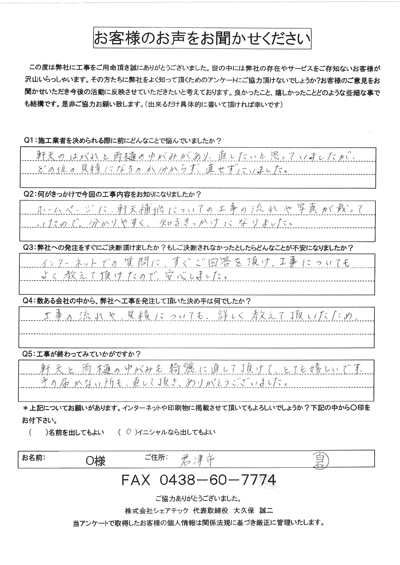 お客様のお声をお聞かせください
この度は弊社に工事をご用命頂き誠にありがとうございました。世の中には弊社の存在やサービスをご存知ないお客様が
沢山いらっしゃいます。その方たちに弊社をよく知って頂くためのアンケートにご協力頂けないでしょうか？お客様のご意見をお
聞かせいただき今後の活動に反映させていただきたいと考えております。良かったこと、嬉しかったことどのような些細な事で
も結構です。是非ご協力お願い致します。（出来るだけ具体的に書いて頂ければ幸いです）
Q1：施工業者を決められる際に前にどんなことで悩んでいましたか？
軒天のはがれと雨樋のゆがみがあり、直したいと思っていましたが、
どの位の見積になるのか分からず、直せずにいました。
Q2：何がきっかけで今回の工事内容をお知りになりましたか？
ホームページに、軒天補修についての工事の流れや写真が載って
いたので、分かりやすく、知るきっかけになりました。
Q3：弊社への発注をすぐにご決断頂けましたか？もしご決断されなかったとしたらどんなことが不安になりましたか？
インターネットでの質問に、すぐご回答を頂け、工事についても
よく教えて頂けたので、安心しました。
Q4：数ある会社の中から、弊社へ工事を発注して頂いた決め手は何でしたか？
工事の流れや、見積についても、詳しく教えて頂いたため。
Q5：工事が終わってみていかがですか？
軒天と雨樋のゆがみも綺麗に直して頂けて、とても嬉しいです。
手の届かない所も、直して頂き、ありがとうございました。
＊上記についてお願いがあります。インターネットや印刷物に掲載させて頂いてもよろしいでしょうか？下記の中から〇印を
お付け下さい。
（　　）名前を出してもよい　（ 〇 ）イニシャルなら出してもよい
お名前：　O様　ご住所：　君津市
FAX 0438-60-7774
ご協力ありがとうございました。
株式会社シェアテック 代表取締役 大久保 誠二
当アンケートで取得したお客様の個人情報は関係法規に基づき厳正に管理いたします。